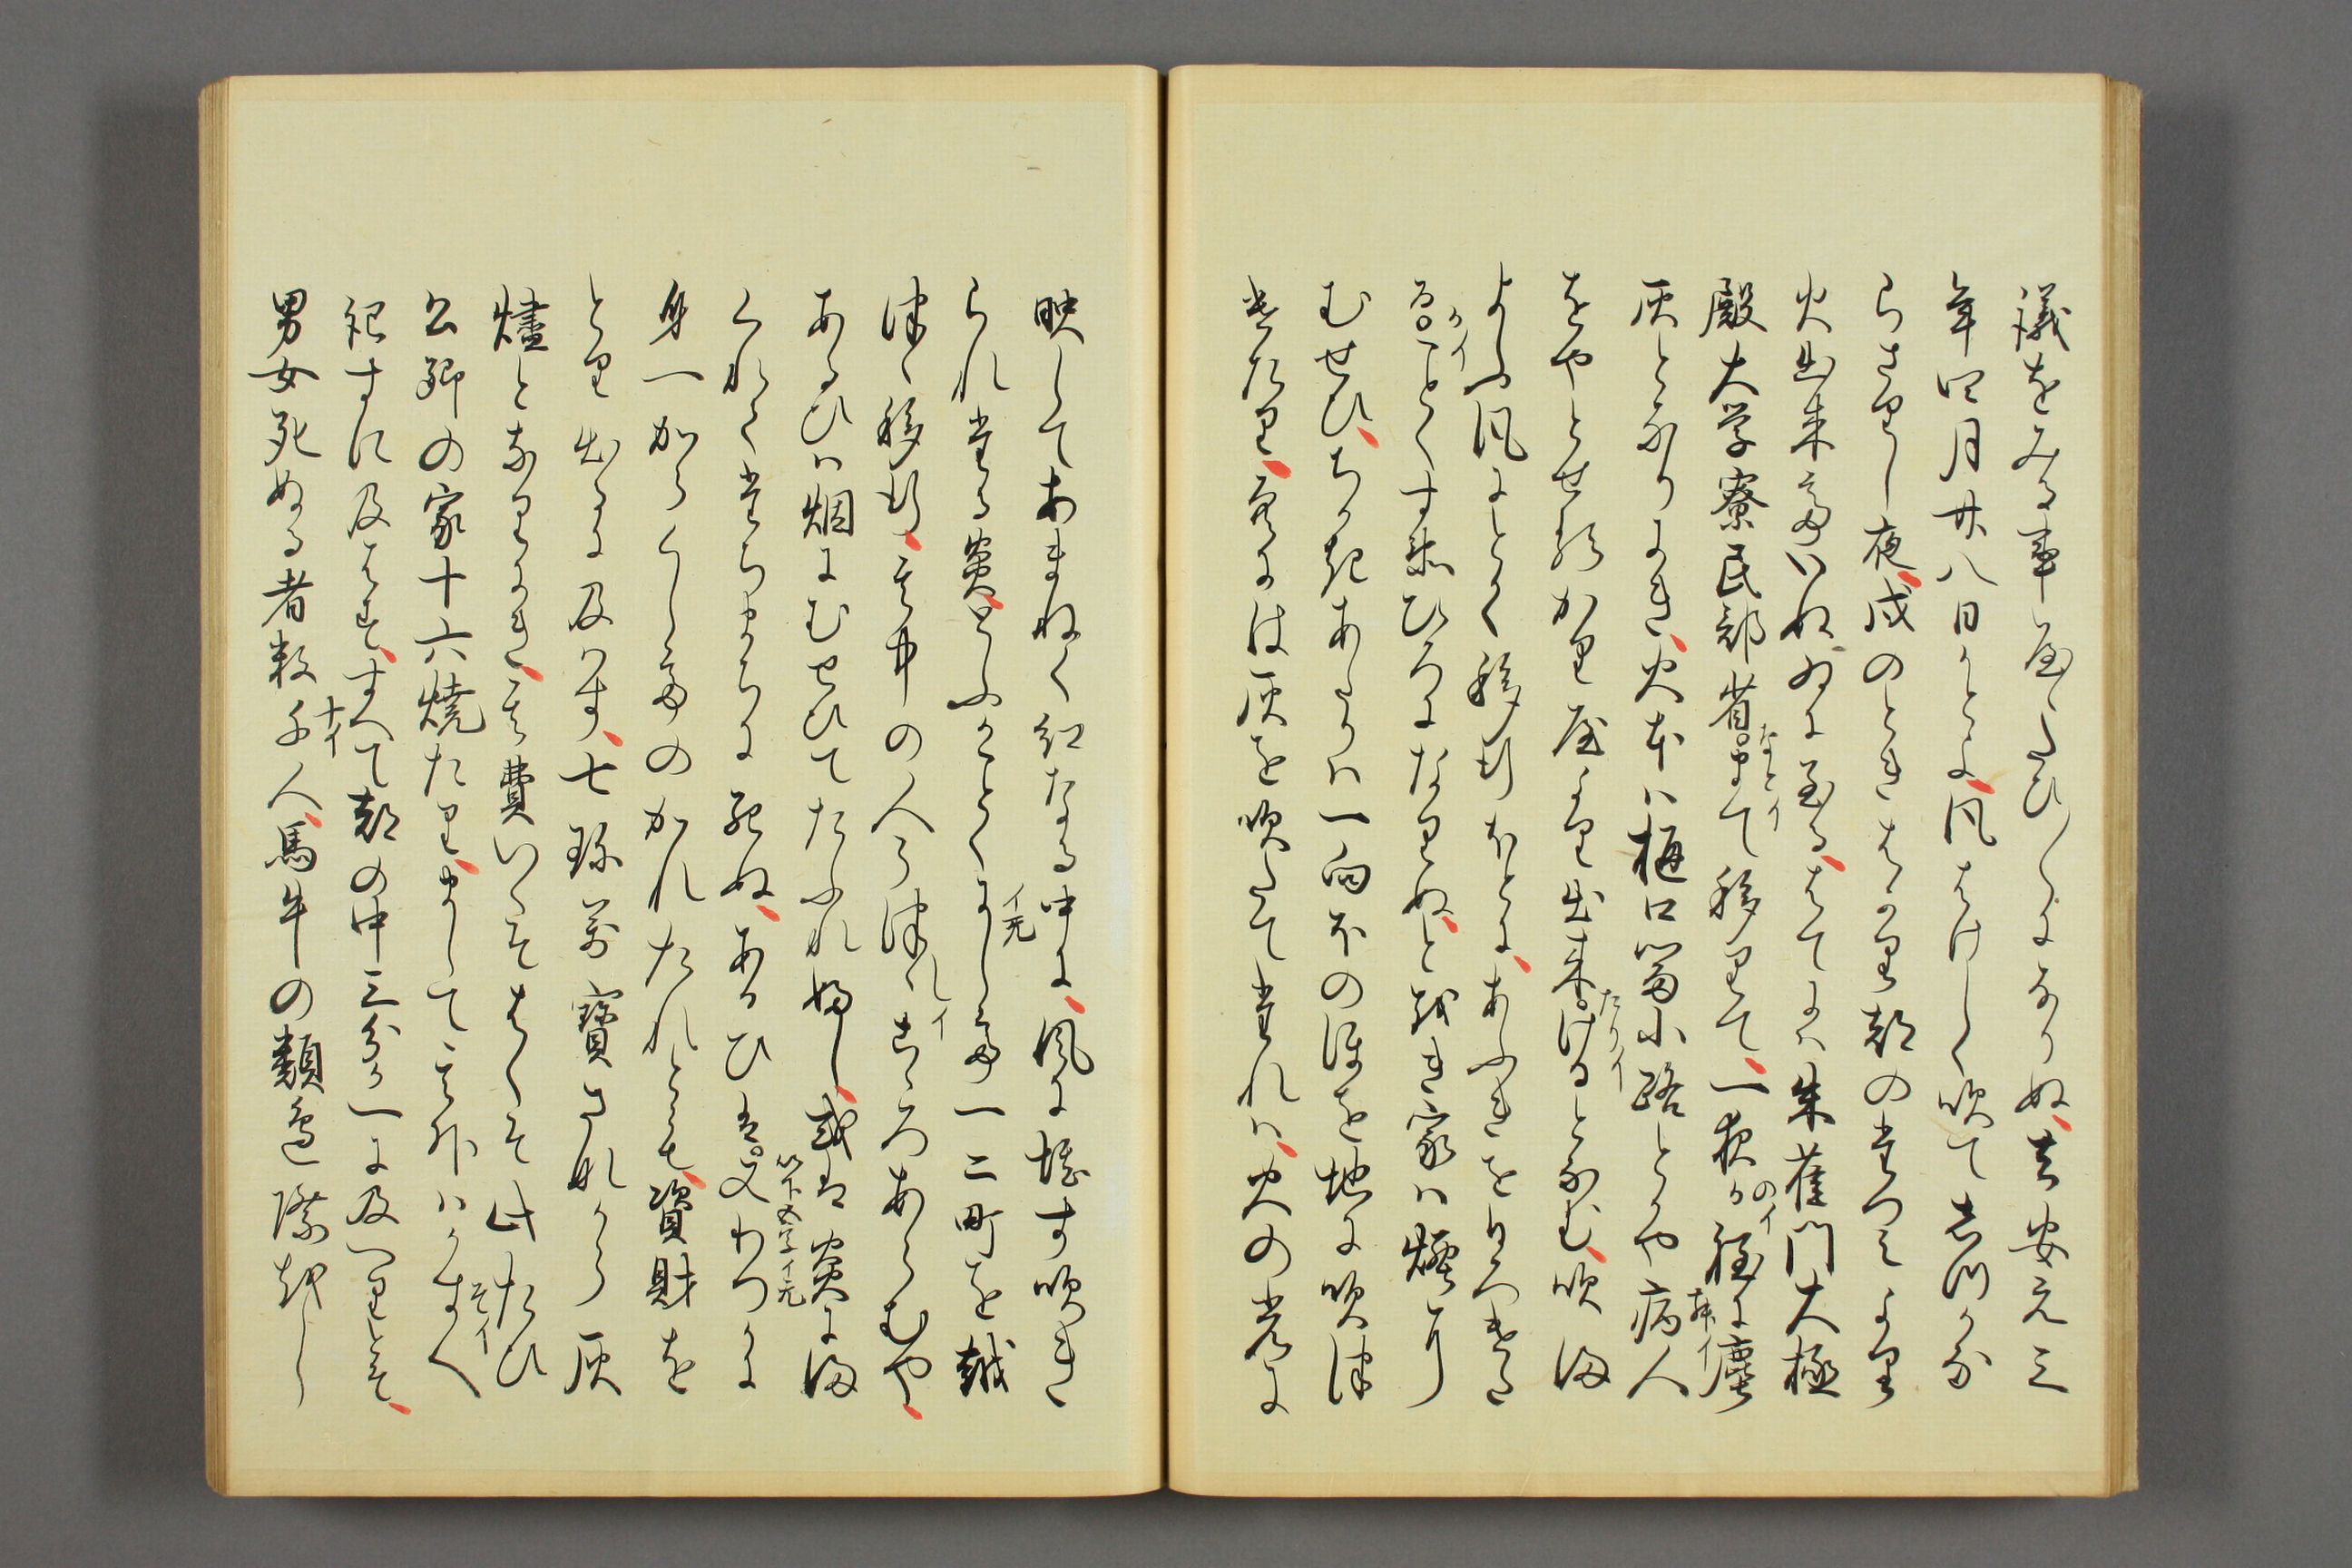 議をみる事やゝたひ〱になりぬ去安元三
年四月廿八日かとよ風はけしく吹てしつかな
らさりし夜戌のときはかり都のたつみより
火出来ていぬゐに至るはてには朱雀門大極
殿大学寮民部省まて移りて一夜か程に塵
なとイ
のイ
内イ
灰となりにき火本は樋口冨小路とかや病人
をやとせるかり屋より出来けるとなむ吹ま
たりイ
よふ風にとかく移行ほとにあふきをひろけた
ることくすゑひろになりぬとをき家は煙に
かイ
むせひちかきあたりは一向ほのほを地に吹つ
けたり空には灰を吹たてたれは火の光に
映してあまねく紅なる中に風に堪す吹き
られたる炎とふかことくにして一二町を越
イ无
つゝ移行其中の人うつゝ心あらむや
しイ
あるひは烟にむせひてたふれ婦し或は炎にま
くれてたちまちに死ぬあるひは又わつかに
以下五字イ无
身一からくしてのかれたれとも資財を
とり出るに及はす七珍万寳さなから灰
燼となりにき其費いくそはくそ此たひ
公卿の家十六焼たりまして其外はかすへ
そイ
記すに及はすすへて都の中三分か一に及へりとそ
男女死ぬる者数千人馬牛の類邉際をし
十イ